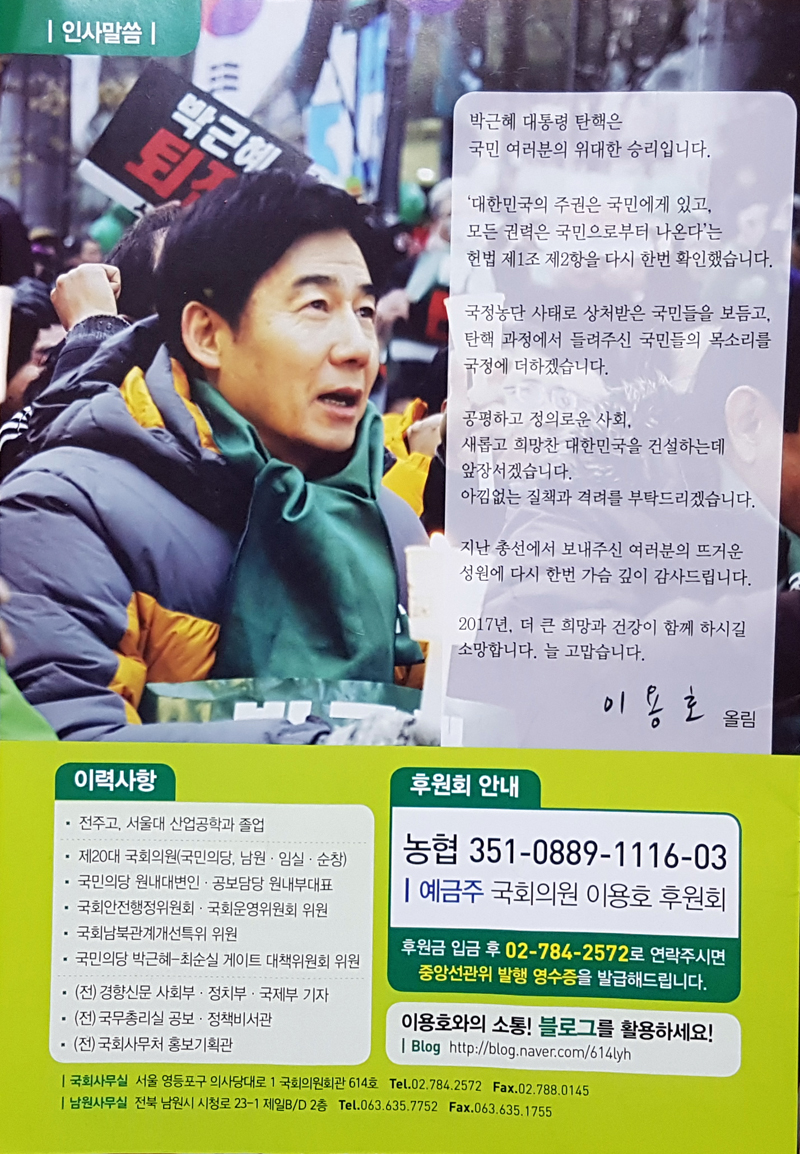 | 인사말씀 |
박근혜
퇴진
박근혜 대통령 탄핵은
국민 여러분의 위대한 승리입니다.
‘대한민국의 주권은 국민에게 있고,
모든 권력은 국민으로부터 나온다’는
헌법 제1조 제2항을 다시 한번 확인했습니다.
국정농단 사태로 상처받은 국민들을 보듬고,
탄핵 과정에서 들려주신 국민들의 목소리를
국정에 더하겠습니다.
공평하고 정의로운 사회,
새롭고 희망찬 대한민국을 건설하는데
앞장서겠습니다.
아낌없는 질책과 격려를 부탁드리겠습니다.
지난 총선에서 보내주신 여러분의 뜨거운
성원에 다시 한번 가슴 깊이 감사드립니다.
2017년, 더 큰 희망과 건강이 함께 하시길
소망합니다. 늘 고맙습니다.
이용호 올림
이력사항
• 전주고, 서울대 산업공학과 졸업
• 제20대 국회의원(국민의당, 남원 · 임실 · 순창)
• 국민의당 원내대변인 · 공보담당 원내부대표
• 국회안전행정위원회 · 국회운영위원회 위원
• 국회남북관계개선특위 위원
• 국민의당 박근혜-최순실 게이트 대책위원회 위원
• (전) 경향신문 사회부 · 정치부 · 국제부 기자
• (전) 국무총리실 공보 · 정책비서관
• (전) 국회사무처 홍보기획관
후원회 안내
농협 351-0889-1116-03
| 예금주 국회의원 이용호 후원회
후원금 입금 후 02-784-2572로 연락주시면
중앙선관위 발행 영수증을 발급해드립니다.
이용호와의 소통! 블로그를 활용하세요!
| Blog http://blog.naver.com/614lyh
| 국회사무실 서울 영등포구 의사당대로 1 국회의원회관 614호 Tel.02.784.2572 Fax.02.788.0145
| 남원사무실 전북 남원시 시청로 23-1 제일B/D 2층 Tel.063.635.7752 Fax.063.635.1755